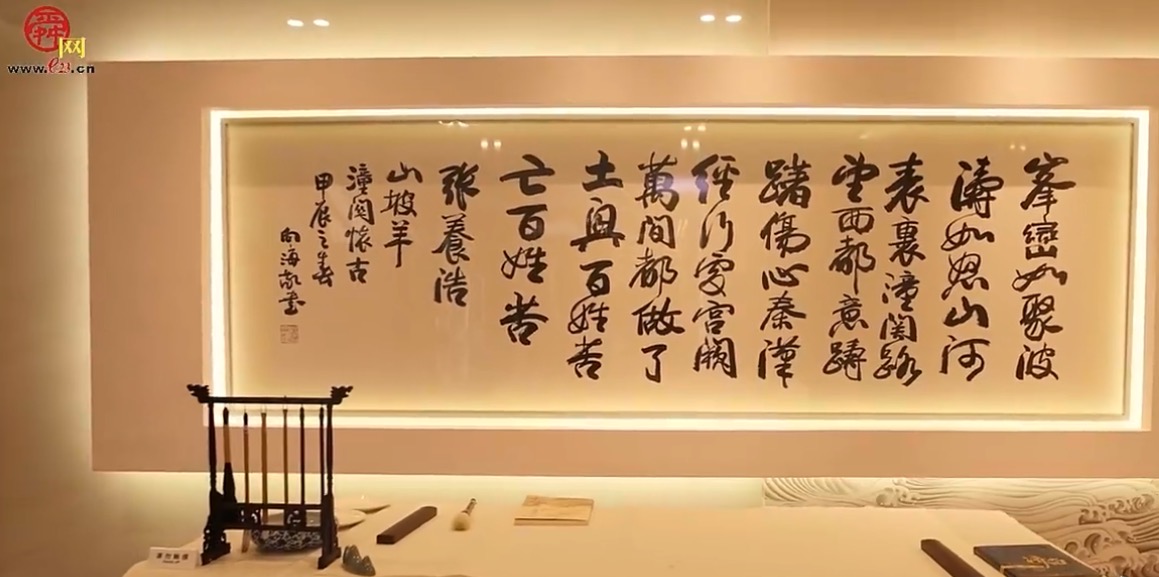 舜网
www.e23.cn
峯巒如聚波
濤如怒山河
表裏潼関路
望西都意躊
躇傷心秦漢
經行處宮闕
萬間都做了
土興百姓苦
亡百姓苦
張養浩
山坡羊
潼関懷古
甲辰之春
向海敬書